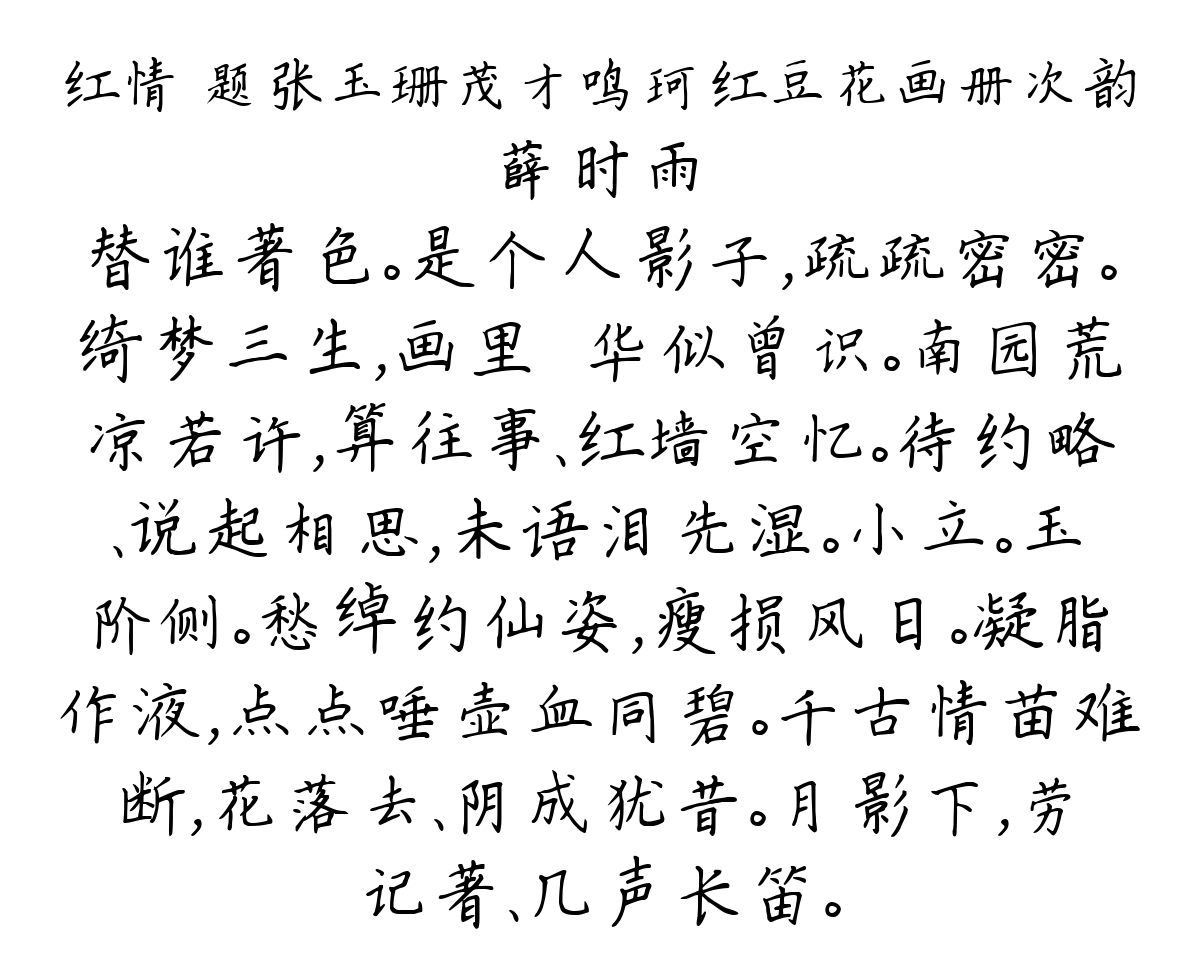 红情 题张玉珊茂才鸣珂红豆花画册次韵
薛时雨
替谁著色。是个人影子,疏疏密密。
绮梦三生,画里 华似曾识。南园荒
凉若许,算往事、红墙空忆。待约略
、说起相思,未语泪先湿。小立。玉
阶侧。愁绰约仙姿,瘦损风日。凝脂
作液,点点唾壶血同碧。千古情苗难
断,花落去、阴成犹昔。月影下,劳
记著、几声长笛。